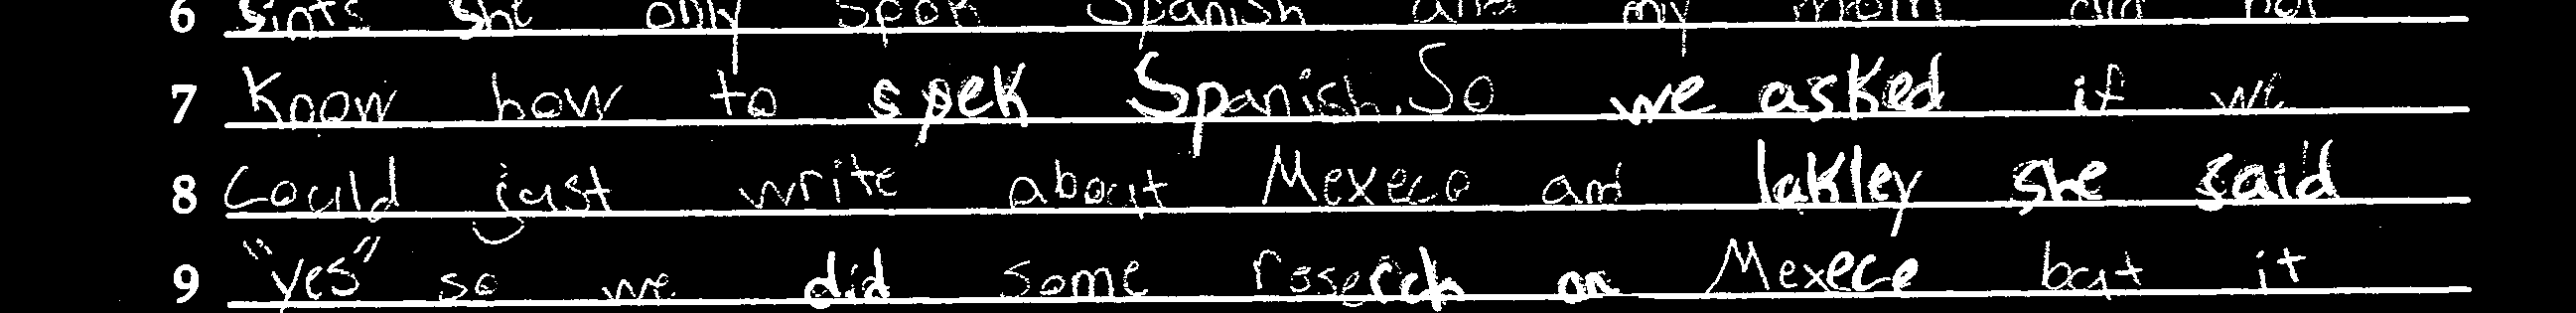 6 sints she only spok Spanish and my mom did not
7 Know how to spek Spanish. So we asked if we
8 Could just write about Mexeco and lakley she said
9 "yes" so we did some reserch on Mexece but it